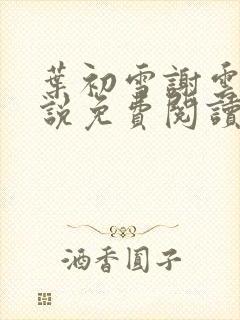 葉初雪謝雲
說免費閱讀
酒香圓子